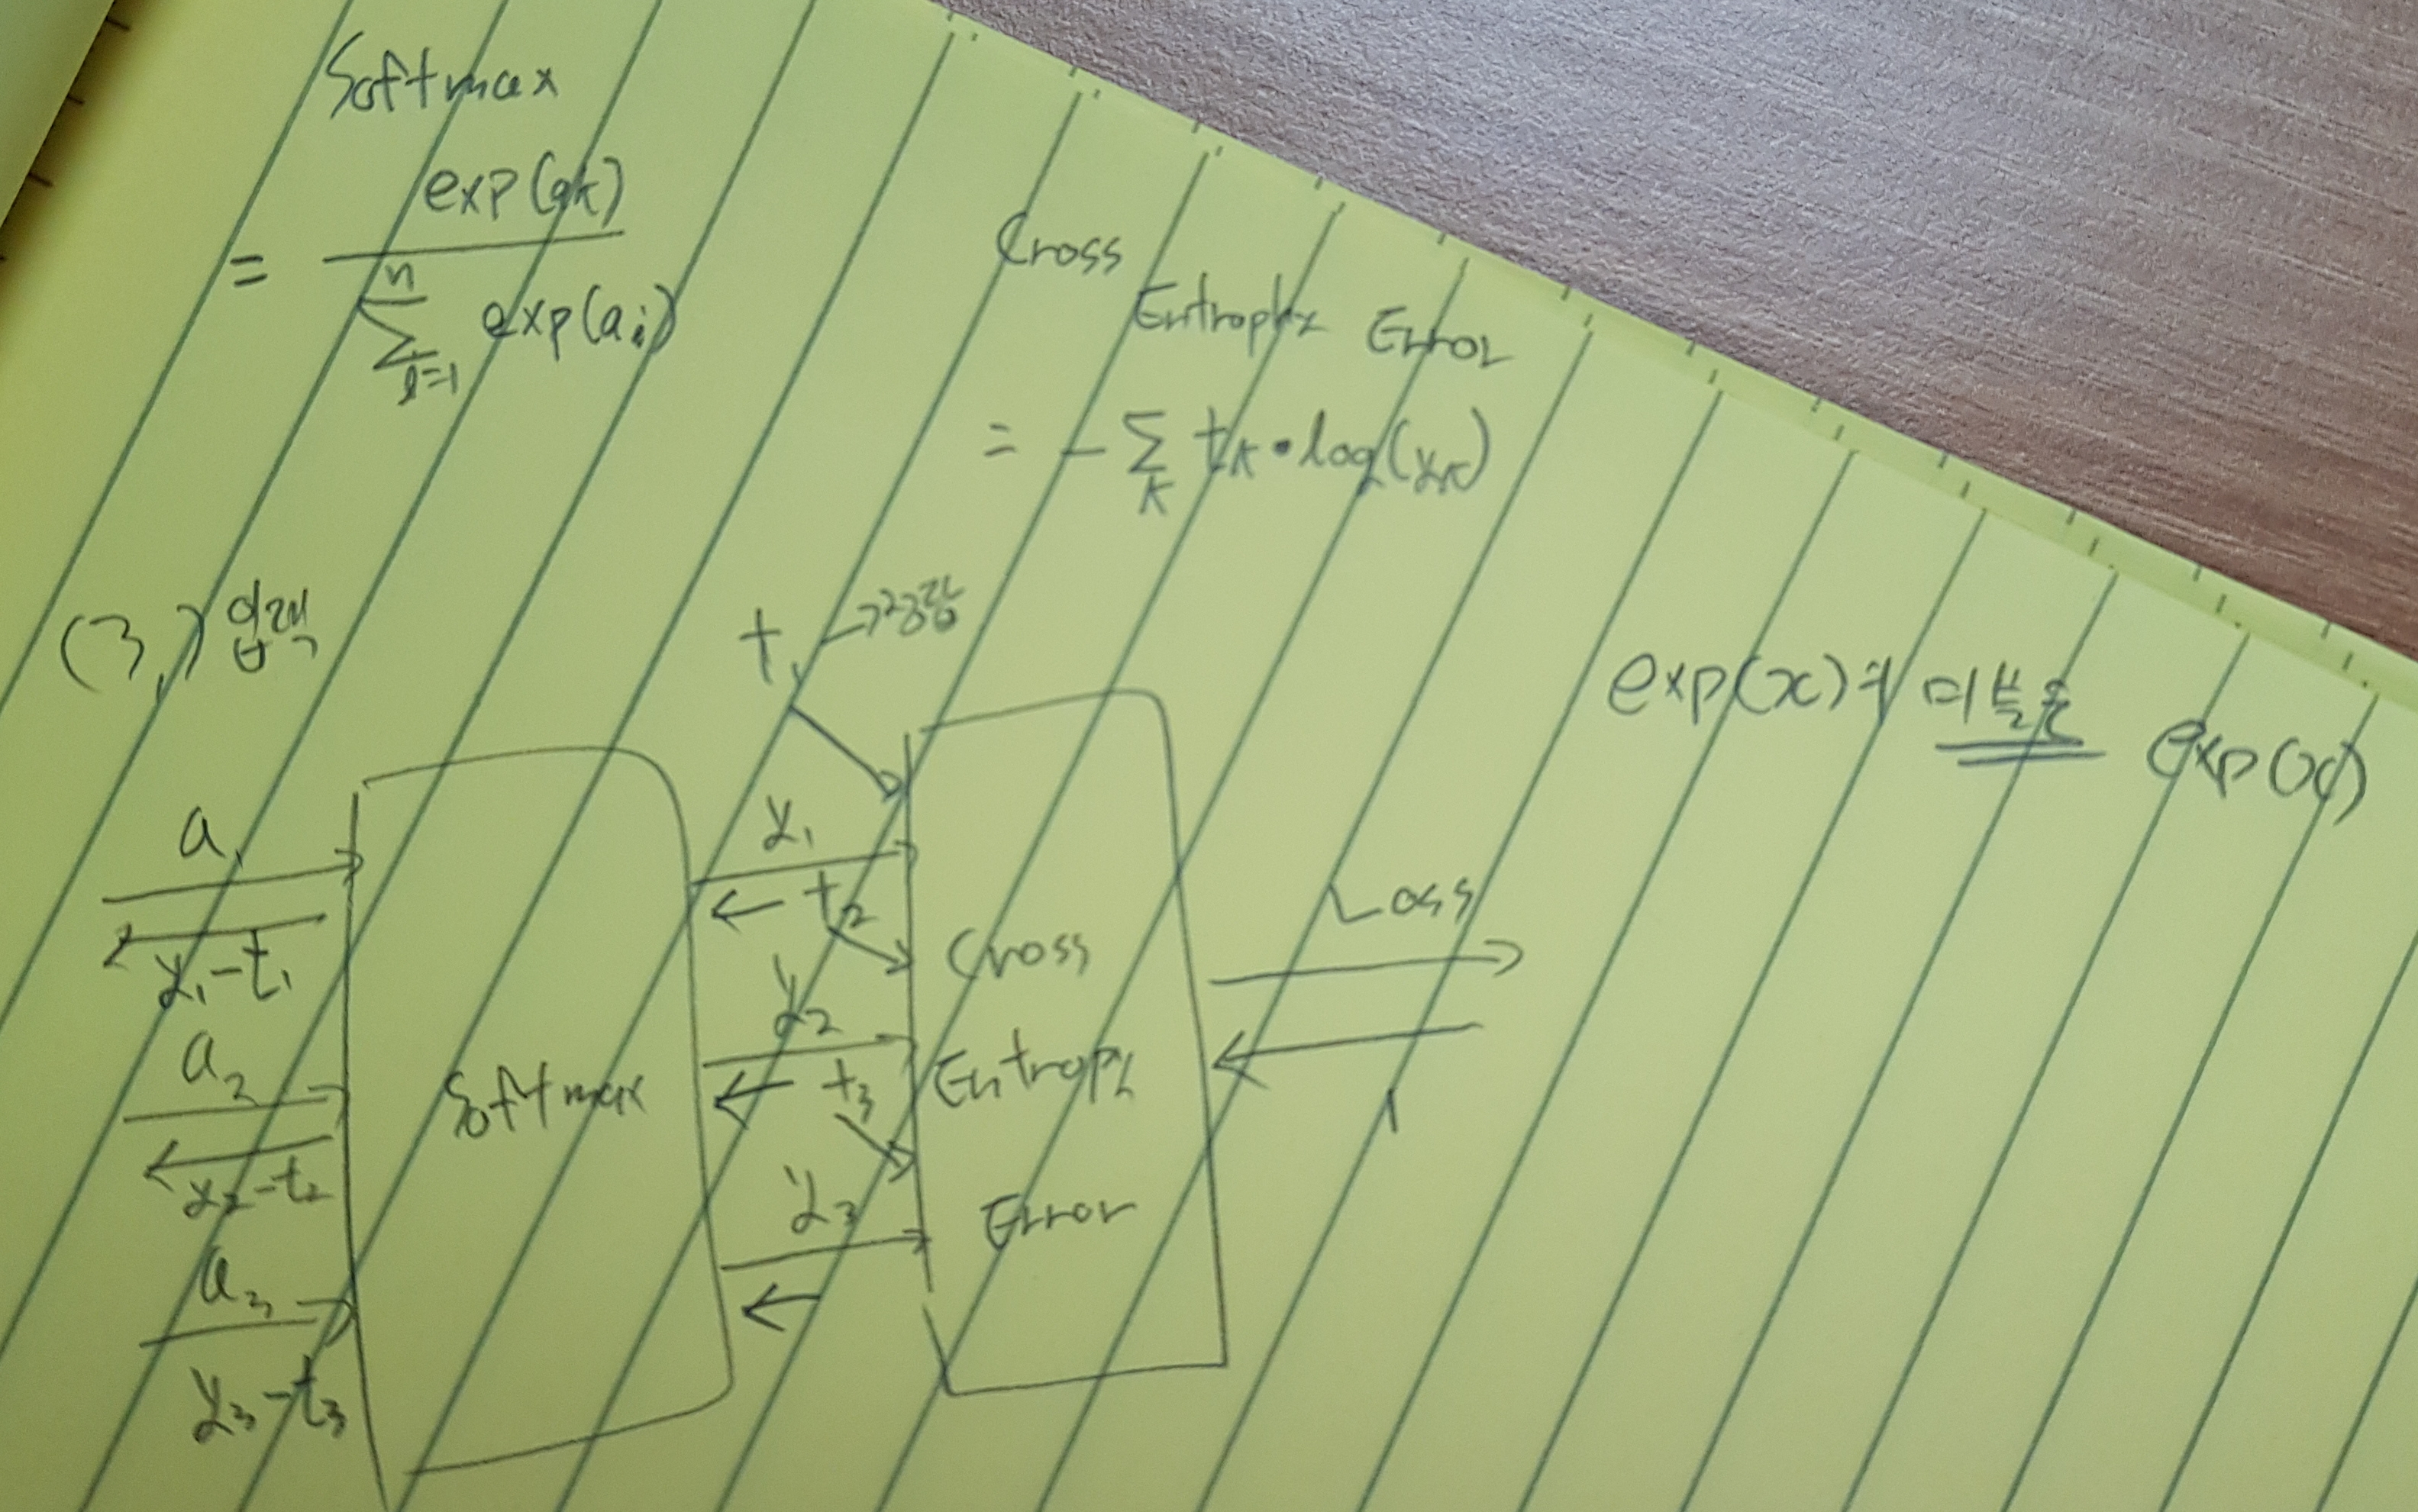 Softmax
= exp(ak)
n
∑ exp(ai)
i=1
Cross
Entrophy Error
= - ∑ tk • log(yk)
k
(3,) 입력
t1 → 정답
exp(x)의 미분은 exp(x)
a1
y1-t1
a2
y2-t2
a3
y3-t3
Softmax
y1
t2
y2
t3
y3
Cross
Entropy
Error
Loss
1